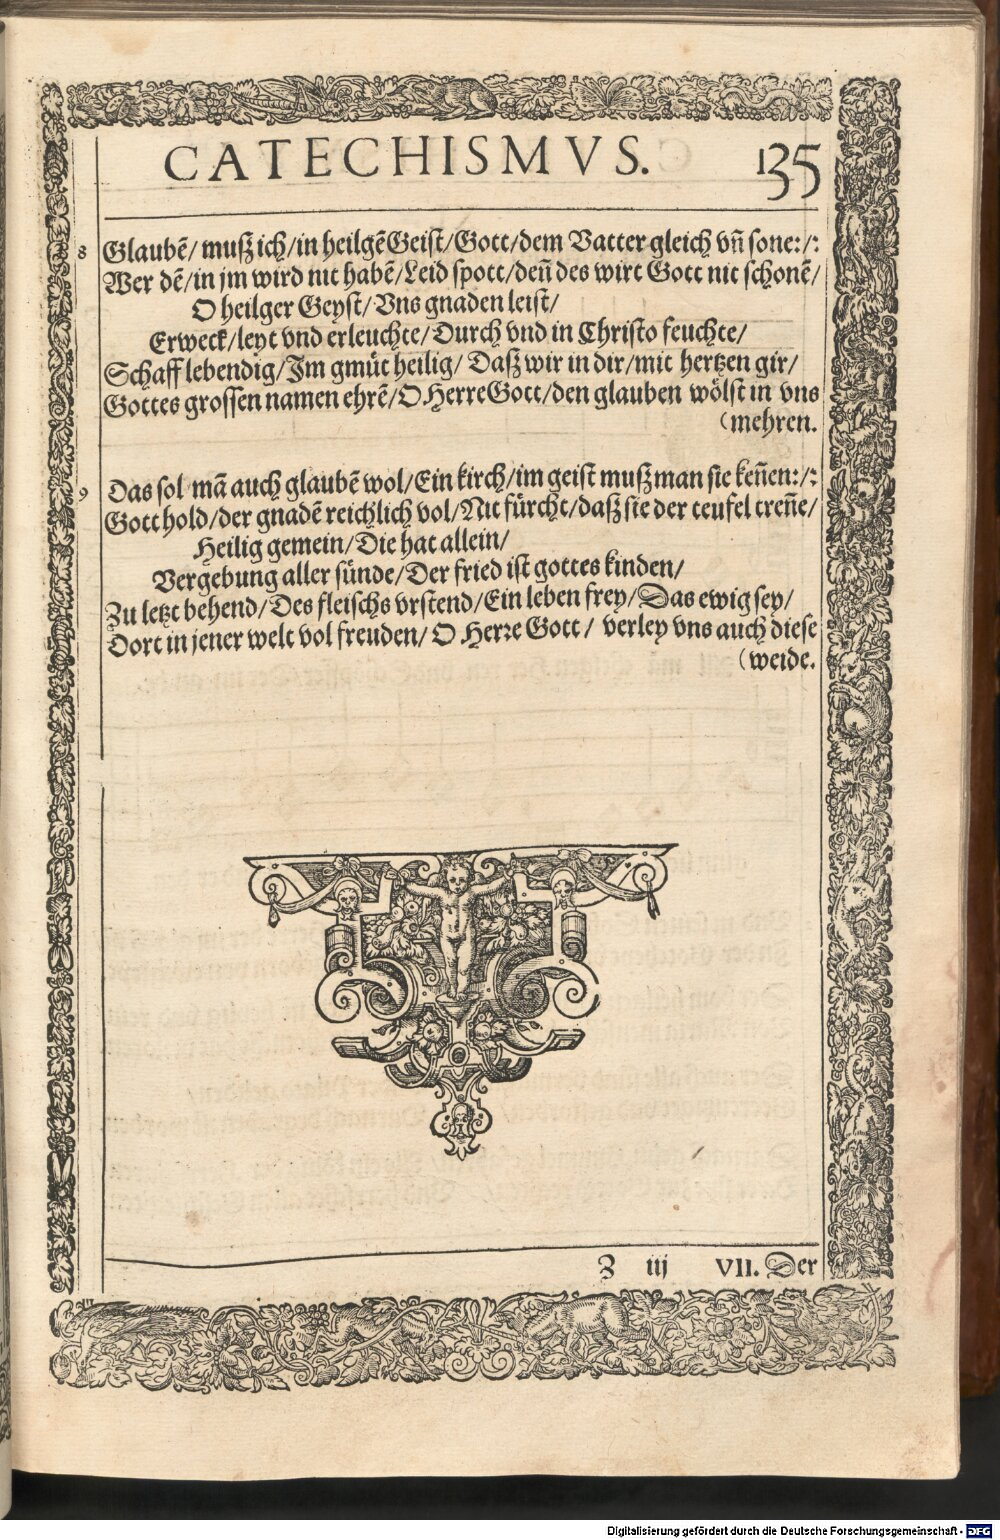 CATECHISMVS. 135
8 Glaubẽ/ muſz ich/in heilgẽ Geiſt/Gott/dem Vatter gleich vñ ſone:/:
Wer dẽ/in jm wird nit habẽ/Leid ſpott/deñ des wirt Gott nit ſchonẽ/
O heilger Geyſt/ Vns gnaden leiſt/
Erweck/leyt vnd erleuchte/ Durch vnd in Chriſto feuchte/
Schaff lebendig/Im gmüt heilig/ Daſz wir in dir/mit hertzen gir/
Gottes groſſen namen ehrẽ/O Herre Gott/den glauben wölſt in vns
(mehren.
9 Das ſol mã auch glaubẽ wol/Ein kirch/im geiſt muſz man ſie keñen:/:
Gott hold/der gnadẽ reichlich vol/Nit fürcht/daſz ſie der teufel treñe/
Heilig gemein/Die hat allein/
Vergebung aller ſünde/Der fried iſt gottes kinden/
Zu letzt behend/Des fleiſchs vrſtend/Ein leben frey/Das ewig ſey/
Dort in jener welt vol freuden/ O Herꝛe Gott/ verley vns auch dieſe
(weide.
Z iij VII. Der
Digitalisierung gefördert durch die Deutsche Forschungsgemeinschaft - DFG